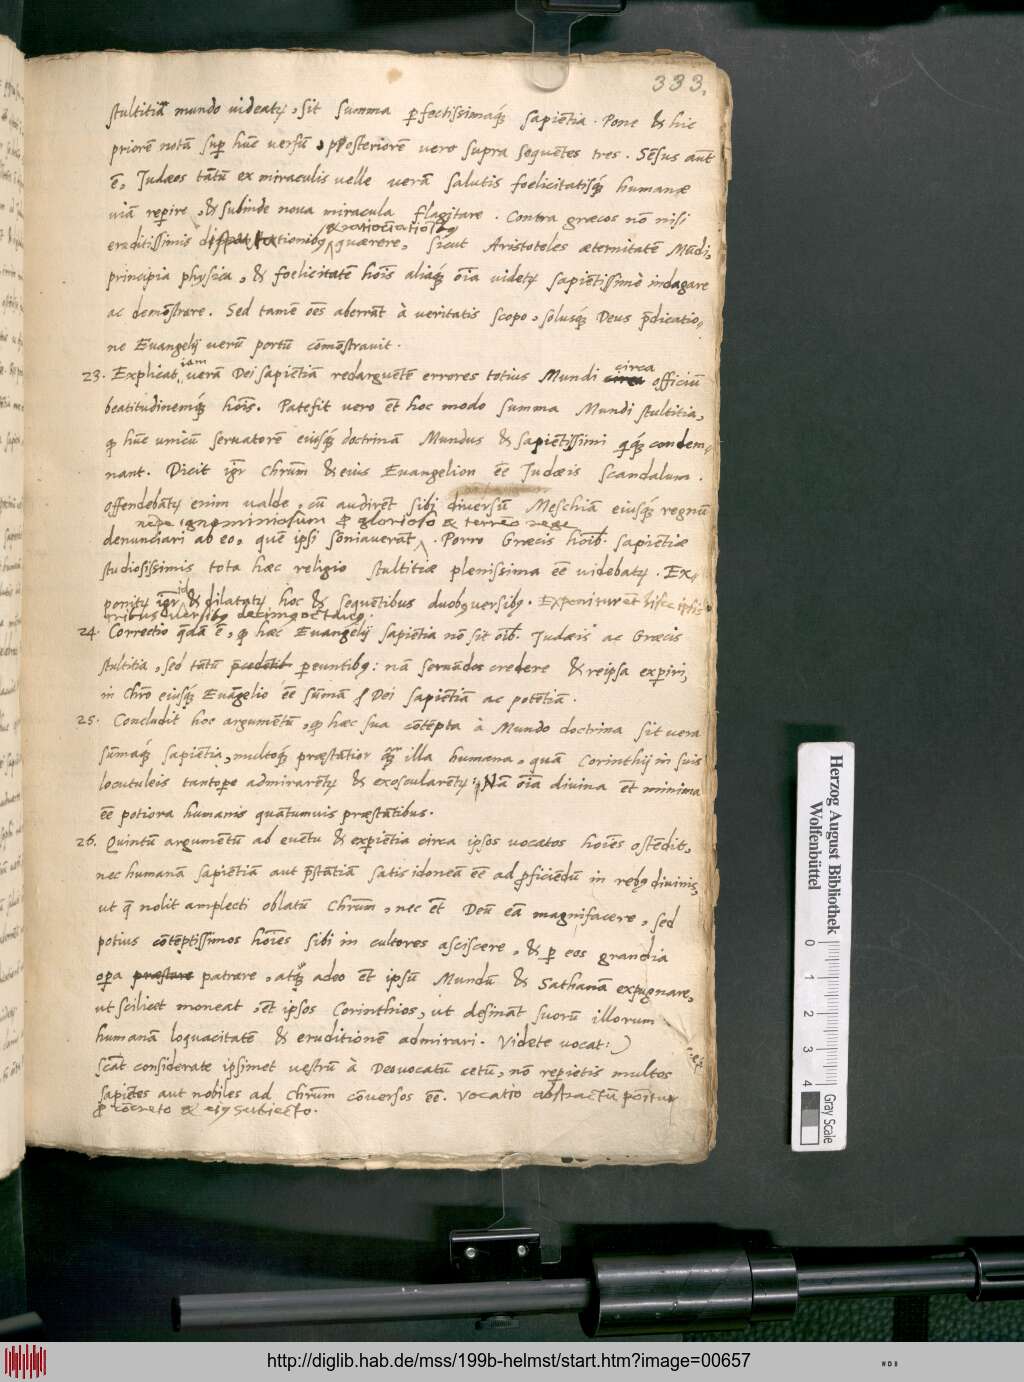 333.
stultitiā mundo uideatꝫ, sit summa ꝑfectissimaqꝫ sapiētia. Pone & hic
priorē notā suꝑ hūc uersū, posteriorē vero supra sequētes tres. Sēsus aūt
ē, Judæos tātū ex miraculis uelle uerā salutis foelicitatisqꝫ humanæ
uiā reꝑire, & subinde noua miracula flagitare. Contra græcos nō nisi
ratiōciatiōibꝫ
eruditissimis quærere, sicut Aristoteles æternitatē Mūdi,
principia physica, & foelicitatē hoīs aliaqꝫ oīa videtꝫ sapiētissimè indagare
ac demōstrare. Sed tamē oēs aberrāt à veritatis scopo, solusqꝫ Deus p̄dicatio,
ne Euangelij uerū portū cōmōstrauit.
iam circa
23. Explicat, uerā Dei sapiētiā redarguētē errores totius Mundi circa officiū
beatitudinemqꝫ hoīs. Patefit uero ēt hoc modo summa Mundi stultitia,
ꝙ hūc unicū seruatorē eiusqꝫ doctrinā Mundus & sapiētissimi qiqꝫ condem,
nant. Dicit igr̄ Chrūm & eius Euangelion ēē Judæis scandalum.
offendebātꝫ enim ualde, cū audirēt sibj diuersū Meschiā eiusqꝫ regnū
nēpe ignominiosum ꝓ glorioso & terreno rege
denunciari ab eo, quē ipsi sōniauerāt. Porro Græcis hoībꝫ sapiētiæ
studiosissimis tota hæc religio stultitiæ plenissima ēē videbatꝫ. Ex,
id
ponitꝫ igr̄ & dilatatꝫ hoc & sequētibus duobꝫ uersibꝫ. Exponitur ēt
tribus uersibꝫ decimo octauo.
24. Correctio q̄dā ē, ꝙ hæc Euangelij sapiētia nō sit oībꝫ Judæis ac Græcis
stultitia, sed tātū ꝑeuntibꝫ: nā seruādos credere & reipsa exꝑiri,
in Chrō eiusqꝫ Euāgelio ēē sūmā Dei sapiētiā ac potētiā.
25. Concludit hoc argumētū, ꝙ hæc sua cōtēpta à Mundo doctrina sit uera
sūmaqꝫ sapiētia, multoqꝫ præstātior qꝫ illa humana, quā Corinthij in suis
locutuleis tantoꝑe admirarētꝫ & exoscularētꝫ: Nā oīa diuina ēt minima
ēē potiora humanis quātumuis præstātibus.
26. Quintū argumētū ab euētu & exꝑiētia circa ipsos uocatos hoīes ostēdit,
nec humanā sapiētiā aut p̄stātiā satis idoneā ēē ad ꝓficiēdū in rebꝫ diuinis,
ut q̄ nolit amplecti oblatū Chrūm, nec ēt Deū eā magnifacere, sed
potius cōtēptissimos hoīes sibi in cultores asciscere, & ꝑ eos grandia
oꝑa præstare patrare, atqꝫ adeo ēt ipsū Mundū & Sathanā expugnare,
ut scilicet moneat, ēt ipsos Corinthios, ut desināt suorū illorum
humanā loquacitatē & eruditionē admirari. Videte uocat:)
scāt considerate ipsimet uestrū à Deo uocatū cētū, nō reꝑietis multos
sapiētes aut nobiles ad Chrūm cōuersos ēē. Vocatio abstractū pōitur
ꝓ cōcreto & eiꝫ subiecto.
Herzog August Bibliothek
Wolfenbüttel
0 1 2 3 4
Gray Scale
http://diglib.hab.de/mss/199b-helmst/start.htm?image=00657
WDB